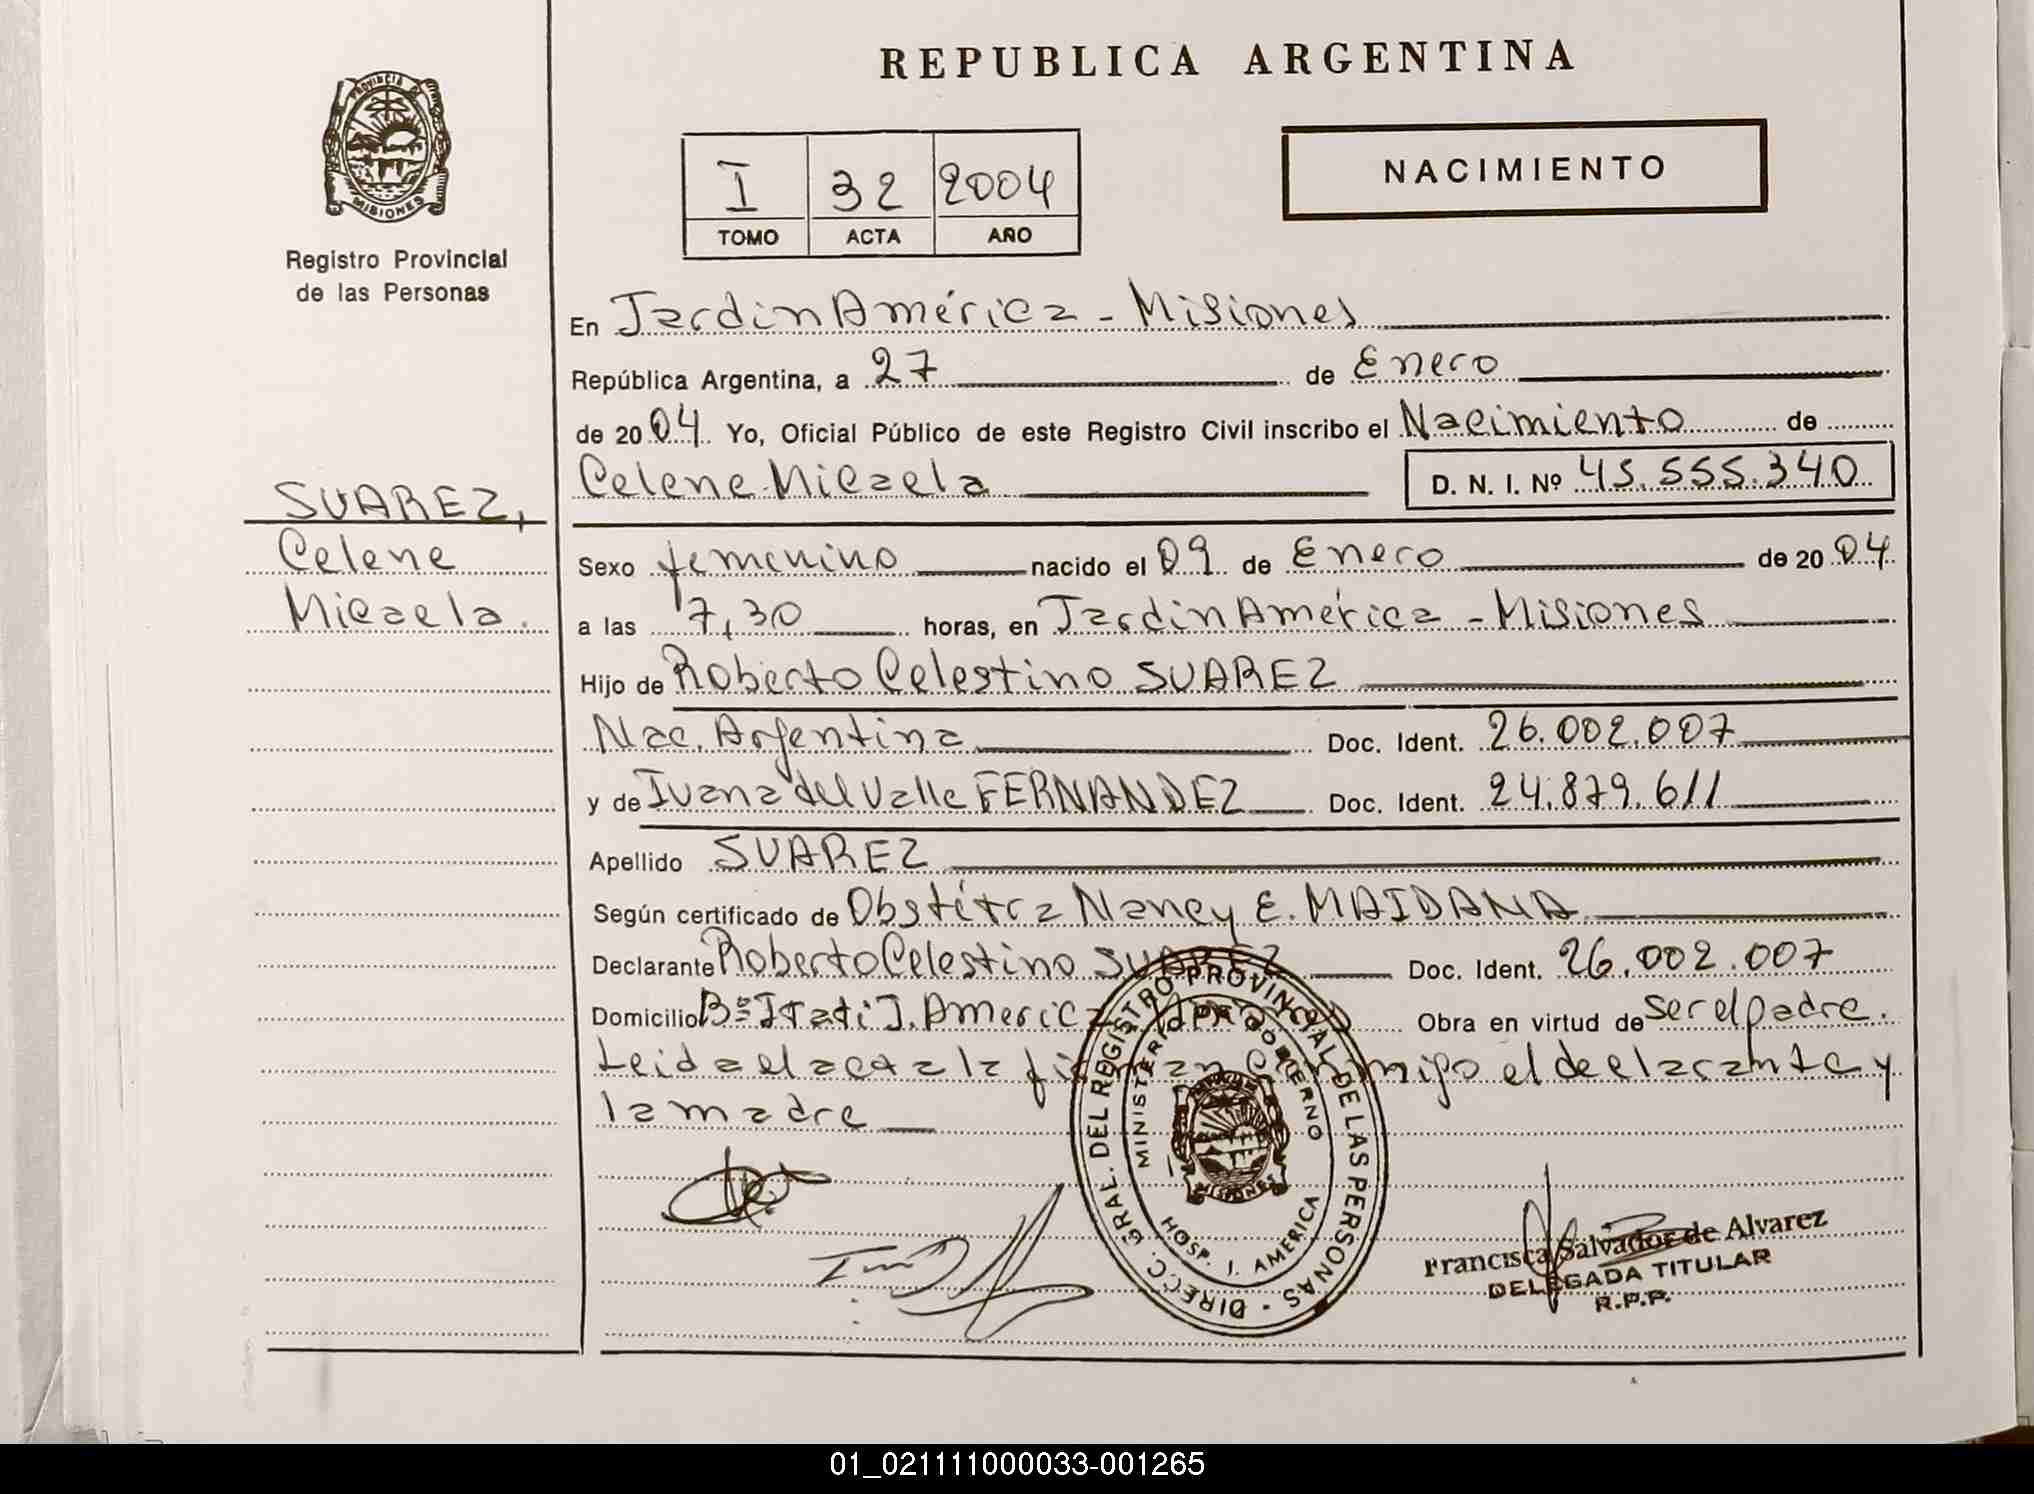 REPUBLICA ARGENTINA
PROVINCIA DE
MISIONES
Registro Provincial
de las Personas
I 32 2004
TOMO ACTA AÑO
NACIMIENTO
En Jardin América - Misiones
República Argentina, a 27 de Enero
de 2004 Yo, Oficial Público de este Registro Civil inscribo el Nacimiento de
Celene Micaela D. N. I. Nº 45.555.340
SUAREZ,
Celene
Micaela.
Sexo femenino nacido el 09 de Enero de 2004
a las 7,30 horas, en Jardin América - Misiones
Hijo de Roberto Celestino SUAREZ
Nac. Argentina Doc. Ident. 26.002.007
y de Juana del Valle FERNANDEZ Doc. Ident. 24.879.611
Apellido SUAREZ
Según certificado de Obstétra Nancy E. MAIDANA
Declarante Roberto Celestino SUAREZ Doc. Ident. 26.002.007
Domicilio Bº Itati J. America Obra en virtud de ser el padre.
Leida el acta la firman conmigo el declarante y
la madre
DIRECC. GRAL. DEL REGISTRO PROVINCIAL DE LAS PERSONAS -
MINISTERIO DE GOBIERNO
MISIONES
HOSP. J. AMERICA
Francisca Salvador de Alvarez
DELEGADA TITULAR
R.P.P.
01_021111000033-001265